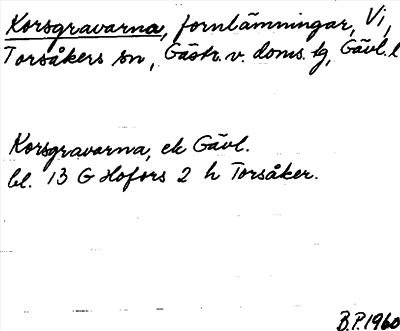 Korsgravarna, fornlämningar, Vi,
Torsåkers sn, Gästr. v. doms. tg, Gävl. l
Korsgravarna, ek Gävl.
bl. 13 G Hofors 2 h Torsåker.
B.P. 1960